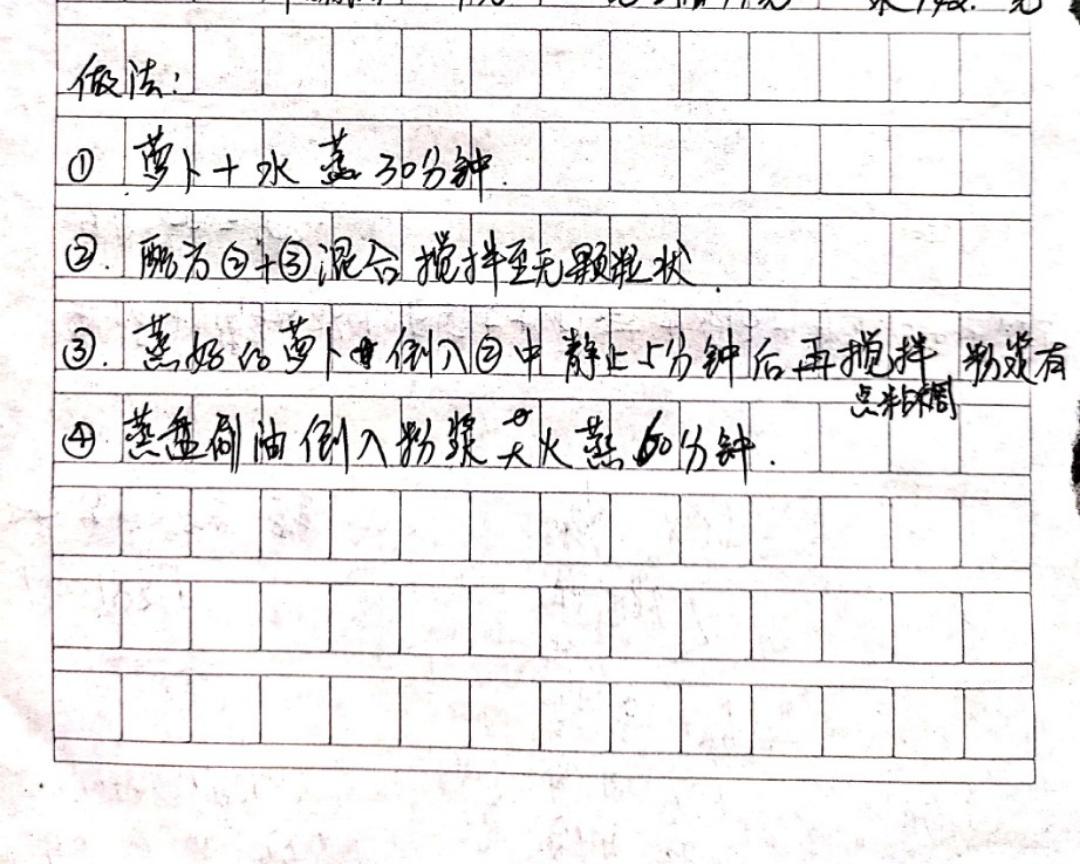 做法：
① 萝卜+水 蒸30分钟.
②. 配方②+③混合搅拌至无颗粒状.
③. 蒸好的萝卜倒入②中 静止5分钟后再搅拌 粉浆有
点粘稠
④. 蒸盘刷油倒入粉浆 大火蒸60分钟.